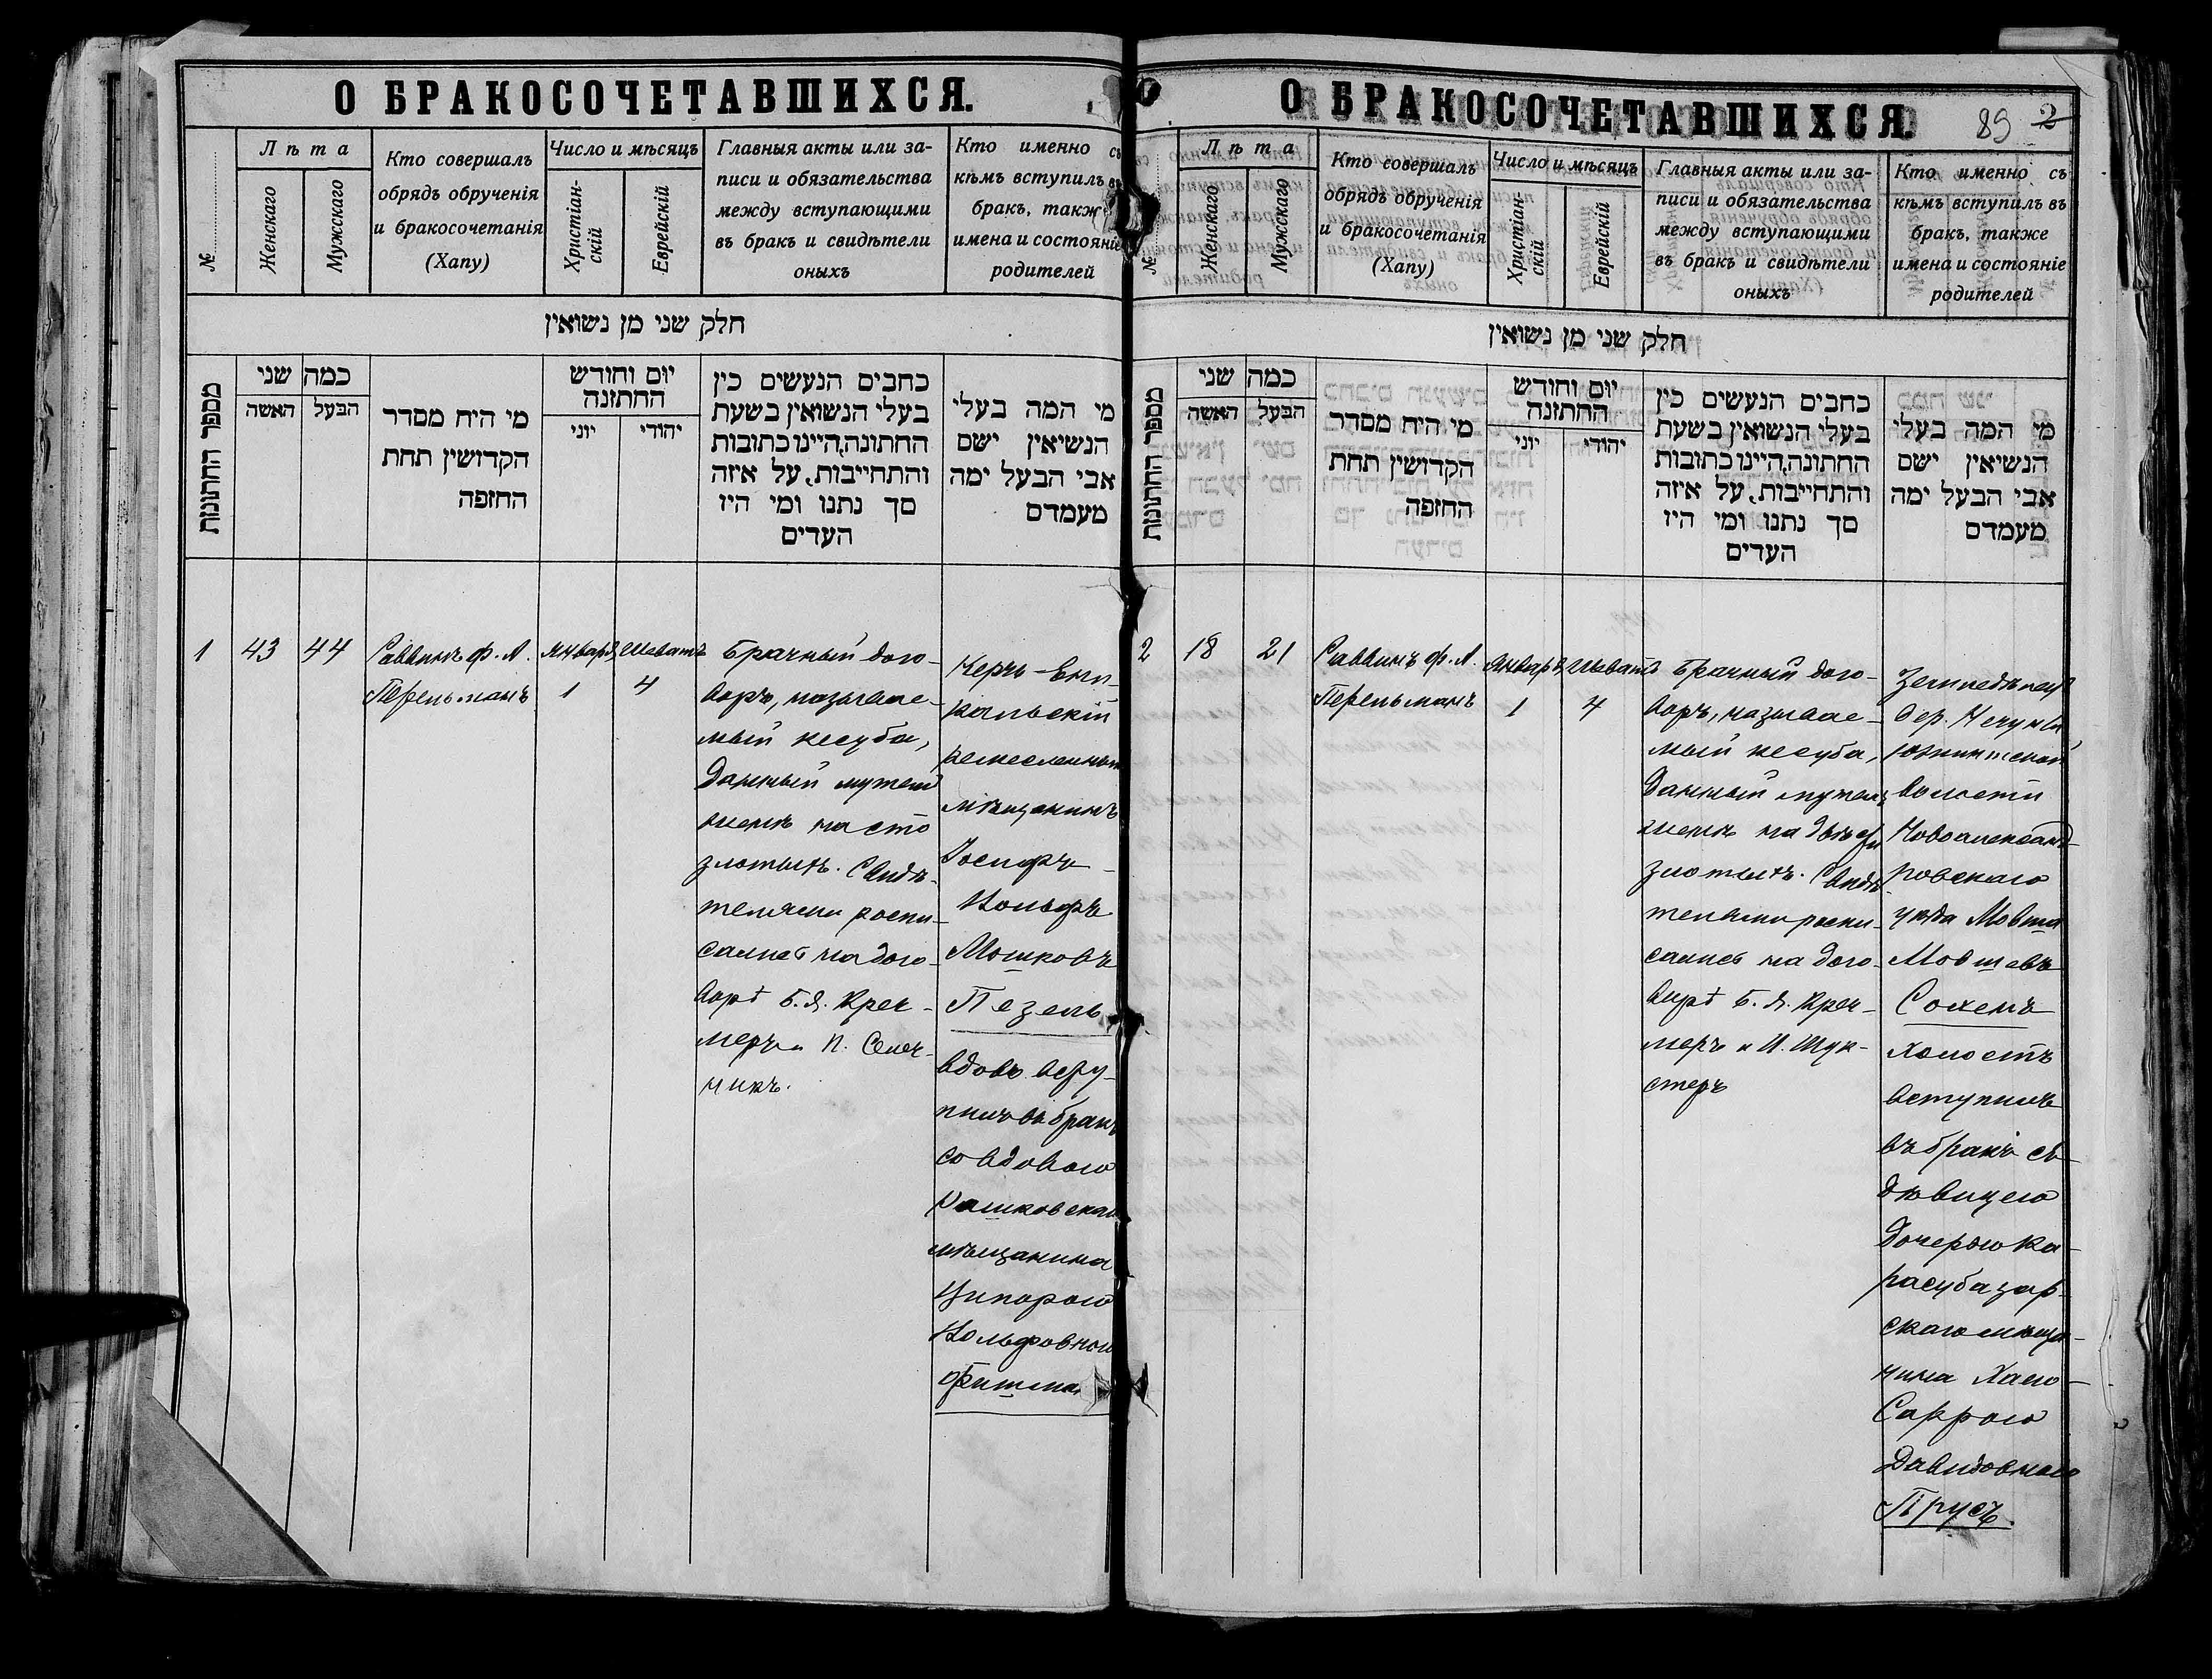 О БРАКОСОЧЕТАВШИХСЯ.
№
Лѣта
Женскаго
Мужскаго
Кто совершалъ
обрядъ обрученія
и бракосочетанія
(Хапу)
Число и мѣсяцъ
Христіан-
скій
Еврейскій
Главныя акты или за-
писи и обязательства
между вступающими
въ бракъ и свидѣтели
оныхъ
Кто именно съ
кѣмъ вступилъ въ
бракъ, также
имена и состояніе
родителей
חלק שני מן נשואין
מספר החתונות
כמה שני
האשה
הבעל
מי היח מסדר
הקדושין תחת
החזפה
יום וחודש
החתזנה
יוני
יהודי
כחבים הנעשים כין
בעלי הנשואין בשעת
החתונה,היינו כתובות
והתחייבות, על איזה
סך נתנו ומי היו
העדים
מי המה בעלי
הנשיאין ישם
אבי הבעל ימה
מעמדם
1
43
44
Саввинъ ф. А.
Перельманъ
Января
1
Шеватъ
4
Брачный дого-
воръ, называе-
мый кесуба,
данный мужемъ
женѣ на сто
злотыхъ. Свидѣ-
телями роспи-
сались на дого-
ворѣ Б. Я. Креч-
меръ и
Керчь-Ени-
кальскій
ремесленный
мѣщанинъ
Іосифъ-
Вольфъ
Мошковъ
Пезель
вдовъ всту-
пилъ въ бракъ
со вдовою
Рашковскаго
мѣщанина
Ципорою
Вольфовною
Фишман
О БРАКОСОЧЕТАВШИХСЯ.
89
2
№
Лѣта
Женскаго
Мужскаго
Кто совершалъ
обрядъ обрученія
и бракосочетанія
(Хапу)
Число и мѣсяцъ
Христіан-
скій
Еврейскій
Главныя акты или за-
писи и обязательства
между вступающими
въ бракъ и свидѣтели
оныхъ
Кто именно съ
кѣмъ вступилъ въ
бракъ, также
имена и состояніе
родителей
חלק שני מן נשואין
מספר החתונות
כמה שני
האשה
הבעל
מי היח מסדר
הקדושין תחת
החזפה
יום וחודש
החתזנה
יוני
יהודי
כחבים הנעשים כין
בעלי הנשואין בשעת
החתונה,היינו כתובות
והתחייבות, על איזה
סך נתנו ומי היו
העדים
מי המה בעלי
הנשיאין ישם
אבי הבעל ימה
מעמדם
2
18
21
Саввинъ ф. А.
Перельманъ
Января
1
Шеватъ
4
Брачный дого-
воръ, называе-
мый кесуба,
данный мужемъ
женѣ на двѣсти
злотыхъ. Свидѣ-
телями роспи-
сались на дого-
ворѣ Б. Я. Креч-
меръ и И. Шук-
стеръ
Земледѣлецъ
дер.
волости
Новоалександ-
ровскаго
уѣзда Мовша
Мовшевъ
Сохенъ
холостъ
вступилъ
въ бракъ съ
дѣвицею
дочерью Ка-
расубазар-
скаго мѣща-
нина Хаею-
Саррою
Давидовною
Прусъ.